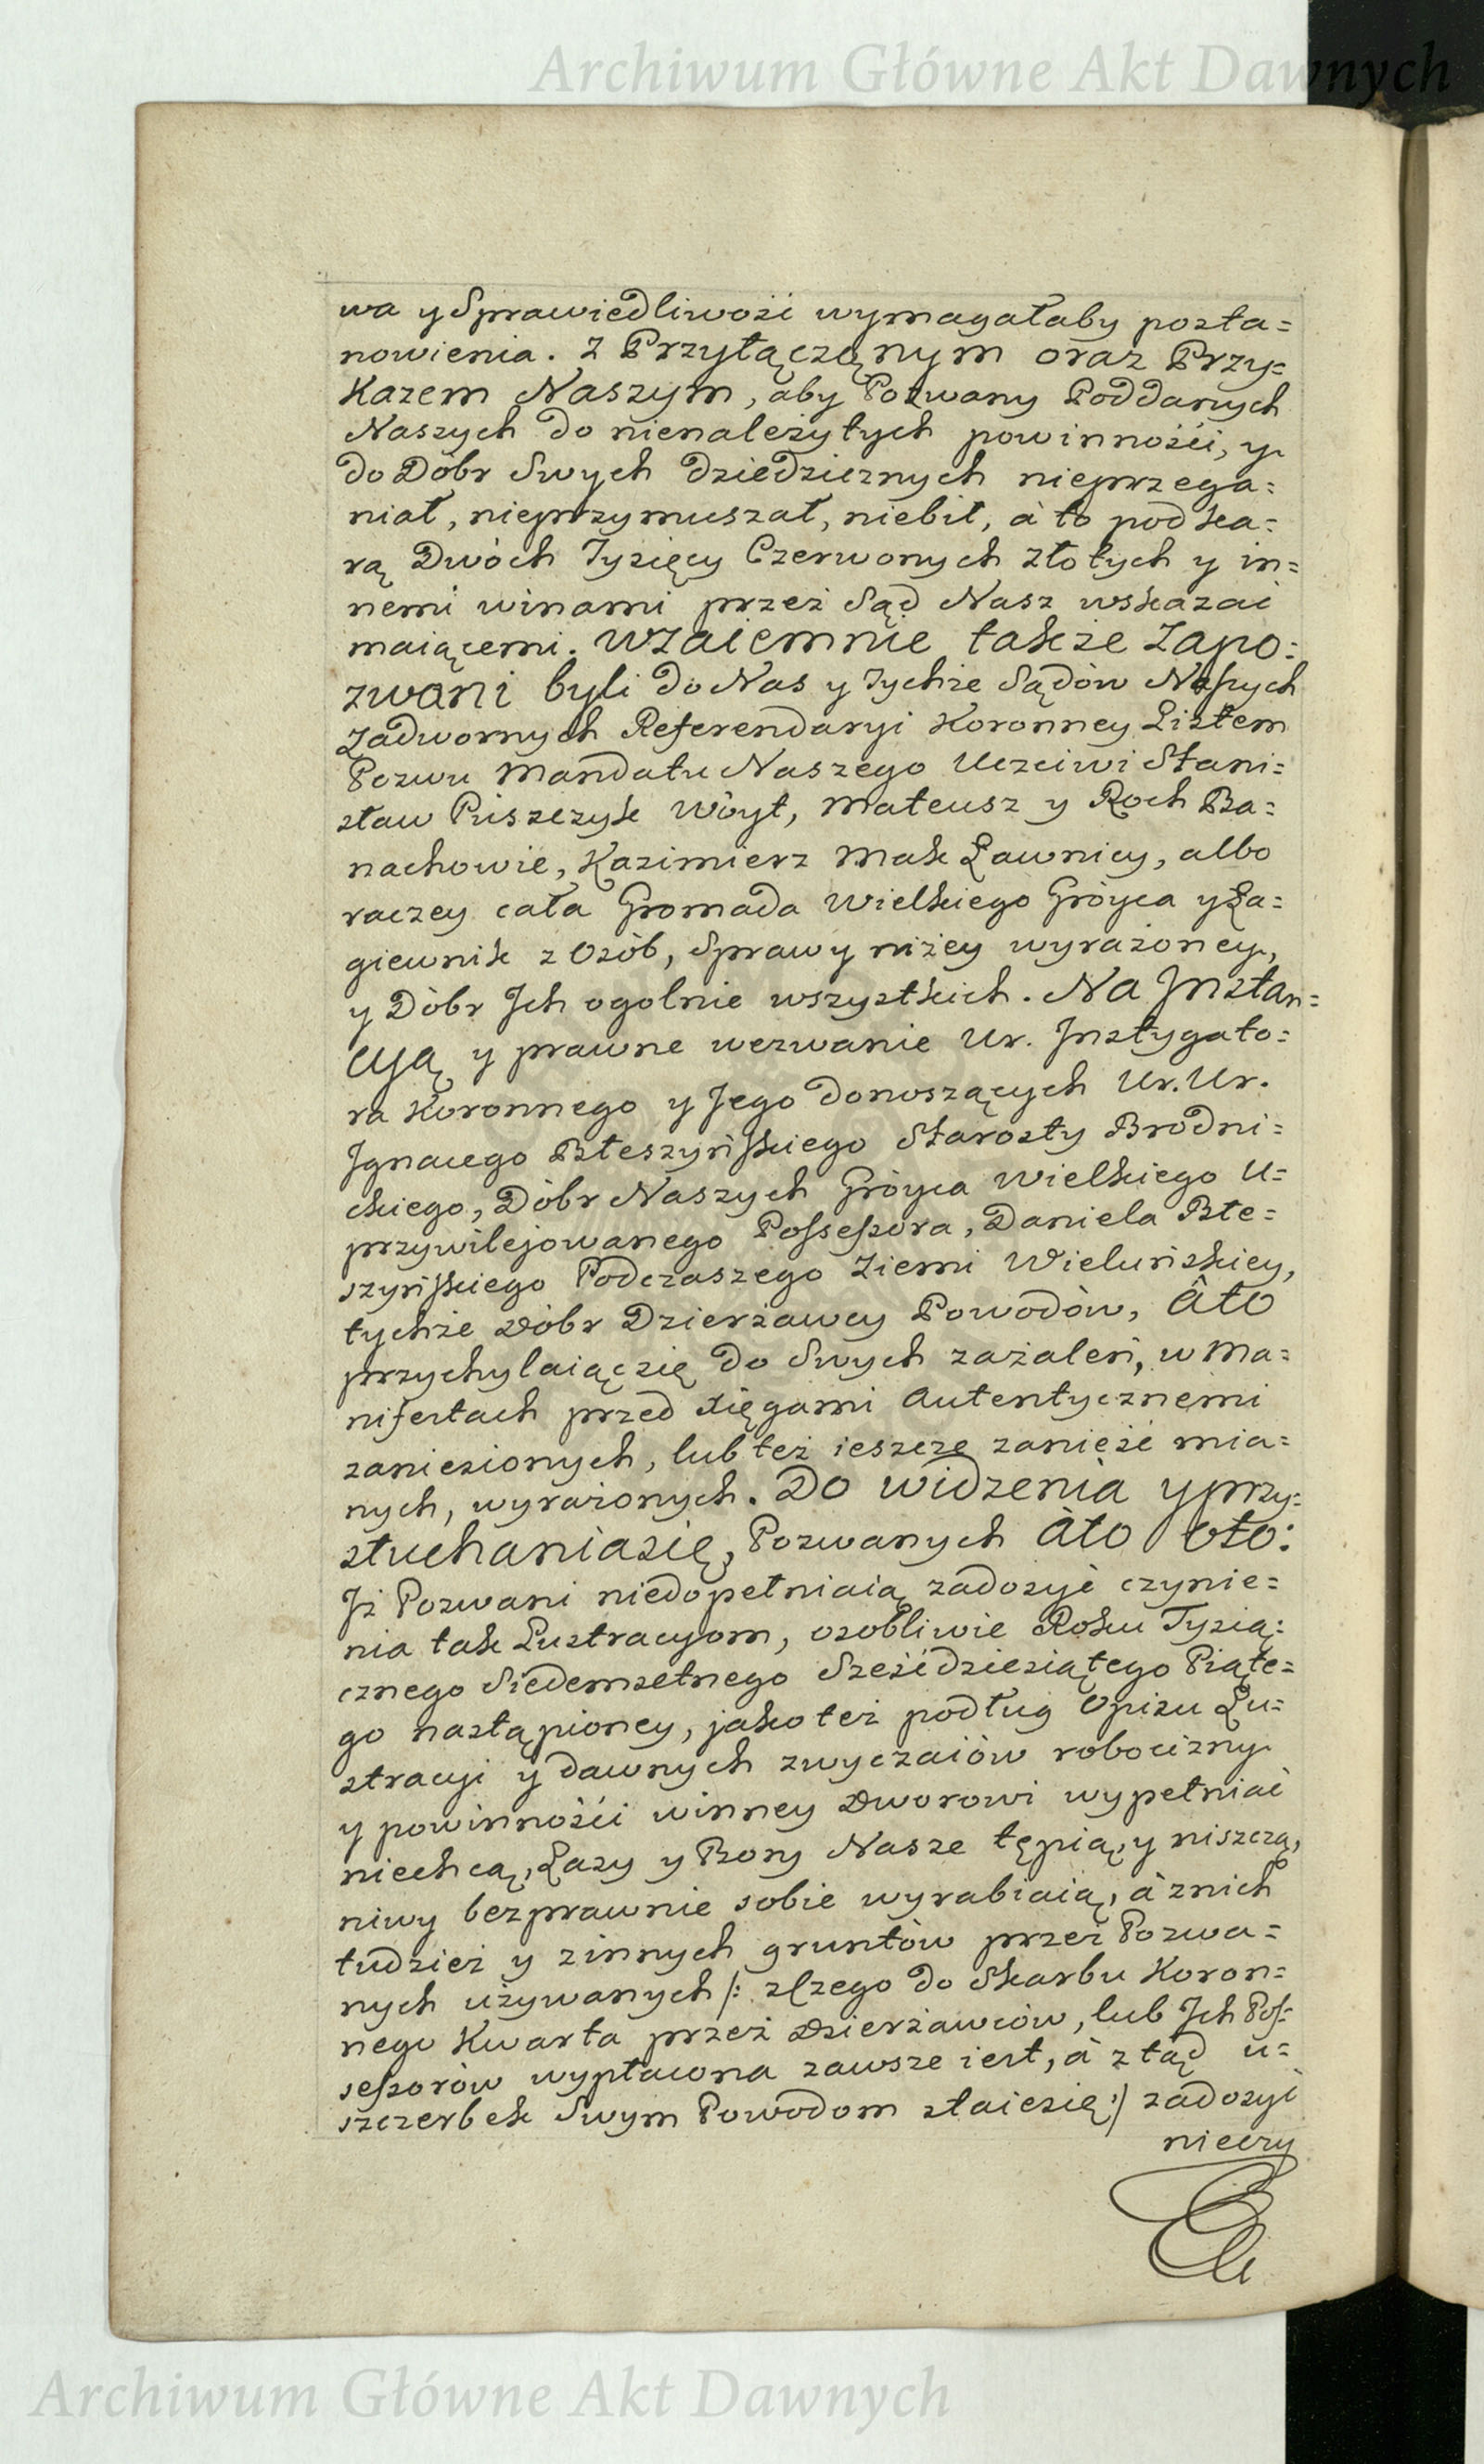 Archiwum Główne Akt Dawnych
wa y Sprawiedliwośi wymagałaby posta=
nowienia. Z Przyłączonym oraz Przy=
Kazem Naszym, aby Pozwany Poddanych
Naszych do nienależytych powinnośći, y
do Dóbr Swych dziedzicznych nieprzega=
niał, nieprzymuszał, niebił, à to pod ka=
rą Dwóch Tysięcy Czerwonych złotych y in=
nemi winami przez Sąd Nasz wskazać
maiącemi. Wzaiemnie także Zapo=
zwani byli do Nas y Tychże Sądów Naszych
Zadwornych Referendaryi Koronney Listem
Pozwu Mandatu Naszego Uczciwi Stani=
sław Puszczyk Wóyt, Mateusz y Roch Ba=
nachowie, Kazimierz Mak Ławnicy, albo
raczey cała Gromada Wielkiego Gróyca y Ła=
giewnik z Osób, Sprawy niżey wyrażoney,
y Dóbr Jch ogolnie wszystkich. Na Jnstan=
cyą y prawne wezwanie Ur. Jnstygato=
ra Koronnego y Jego donoszących Ur. Ur.
Jgnacego Błeszyńskiego Starosty Brodni=
ckiego, Dóbr Naszych Gróyca Wielkiego U=
przywilejowanego Possessora, Daniela Błe=
szyńskiego Podczaszego Ziemi Wieluńskiey,
tychże Dóbr Dzierżawcy Powodów, àto
przychylaiącsię do Swych zażaleń, w Ma=
nifestach przed Xięgami Autentycznemi
zaniesionych, lub też ieszcze zanieść mia=
nych, wyrażonych. Do widzenia y przy=
słuchaniasię, Pozwanych àto oto:
Jż Pozwani niedopełniaią zadosyć czynie=
nia tak Lustracyom, osobliwie Roku Tysią=
cznego Siedemsetnego Sześćdziesiątego Piąte=
go nastąpioney, jakoteż podług Opisu Lu=
stracyi y dawnych zwyczaiów robocizny
y powinnośći winney Dworowi wypełniać
niechcą, Lasy y Bory Nasze tępią, y niszczą,
niwy bezprawnie sobie wyrabiaią, à znich
tudzież y zinnych gruntów przez Pozwa=
nych używanych /: zCzego do Skarbu Koron=
nego Kwarta przez Dzierżawców, lub Jch Pos=
sessorów wypłacona zawsze iest, à ztąd u=
szczerbek Swym Powodom staiesię :/ zadosyć
nieczy
Archiwum Główne Akt Dawnych